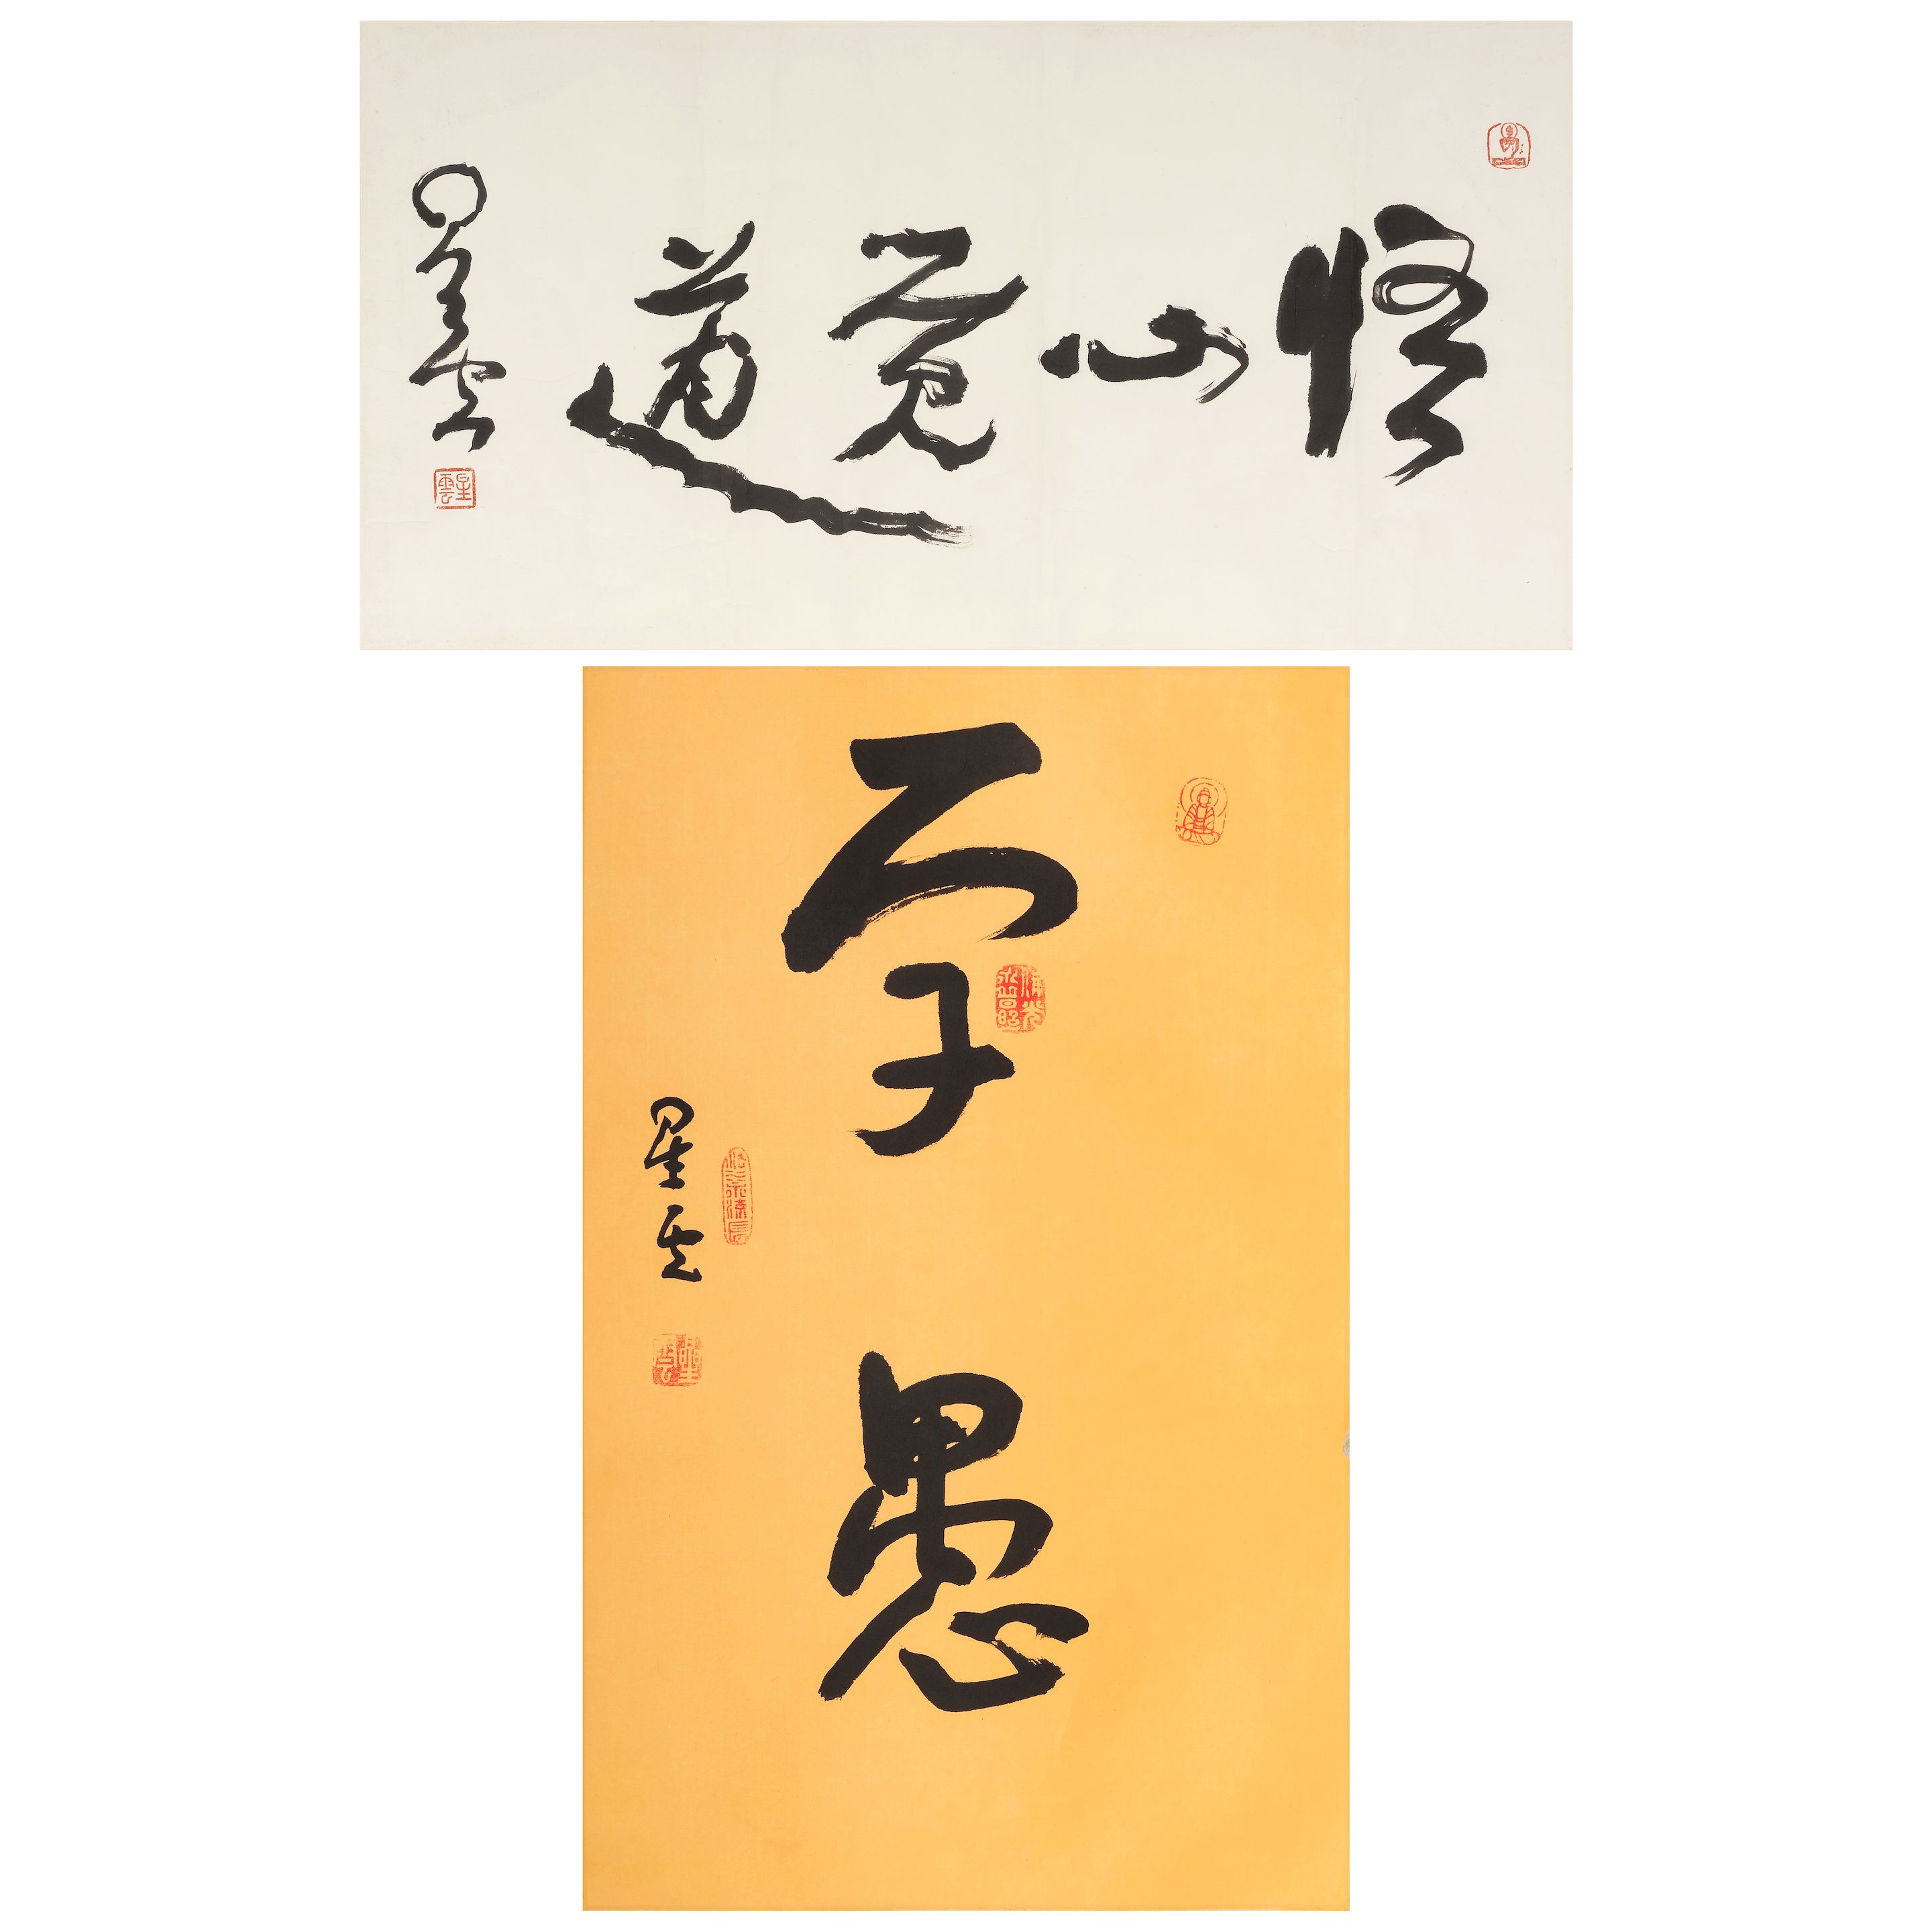 悟心覺道
星雲
星雲
學愚
星云
星雲